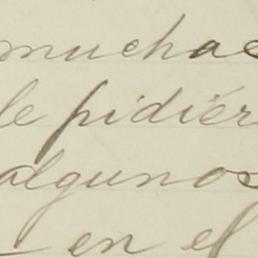 muchas
le pidier
algunos
en el